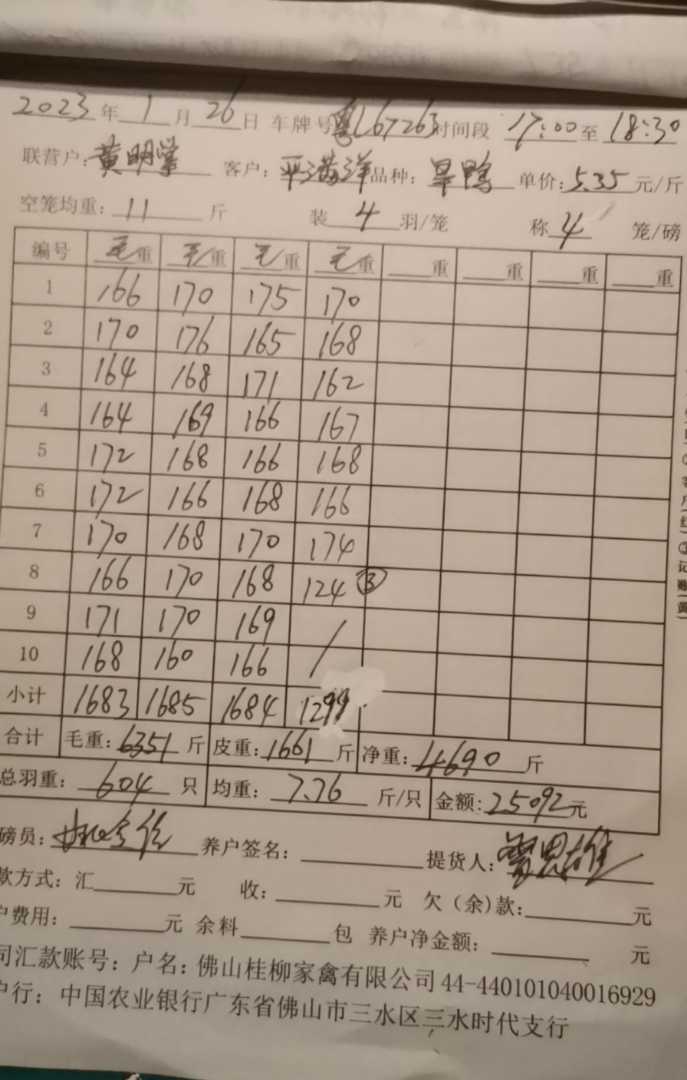 2023年1月26日 车牌号粤L67263时间段17:00至18:30
联营户:黄明 客户:平满洋品种:旱鸭 单价:5.35元/斤
空笼均重:11斤 装4羽/笼 称4笼/磅
编号 毛重 毛重 毛重 毛重 重 重 重 重
1 166 170 175 170
2 170 176 165 168
3 164 168 171 162
4 164 169 166 167
5 172 168 166 168
6 172 166 168 166
7 170 168 170 174
8 166 170 168 124 ③
9 171 170 169 /
10 168 160 166 /
小计 1683 1685 1684 1299
合计 毛重:6351斤 皮重:1661斤 净重:4690斤
总羽重:604只 均重:7.76斤/只 金额:25092元
磅员: 养户签名: 提货人:
款方式:汇 元 收: 元 欠(余)款: 元
户费用: 元 余料 包 养户净金额: 元
司汇款账号:户名:佛山桂柳家禽有限公司44-440101040016929
户行:中国农业银行广东省佛山市三水区三水时代支行